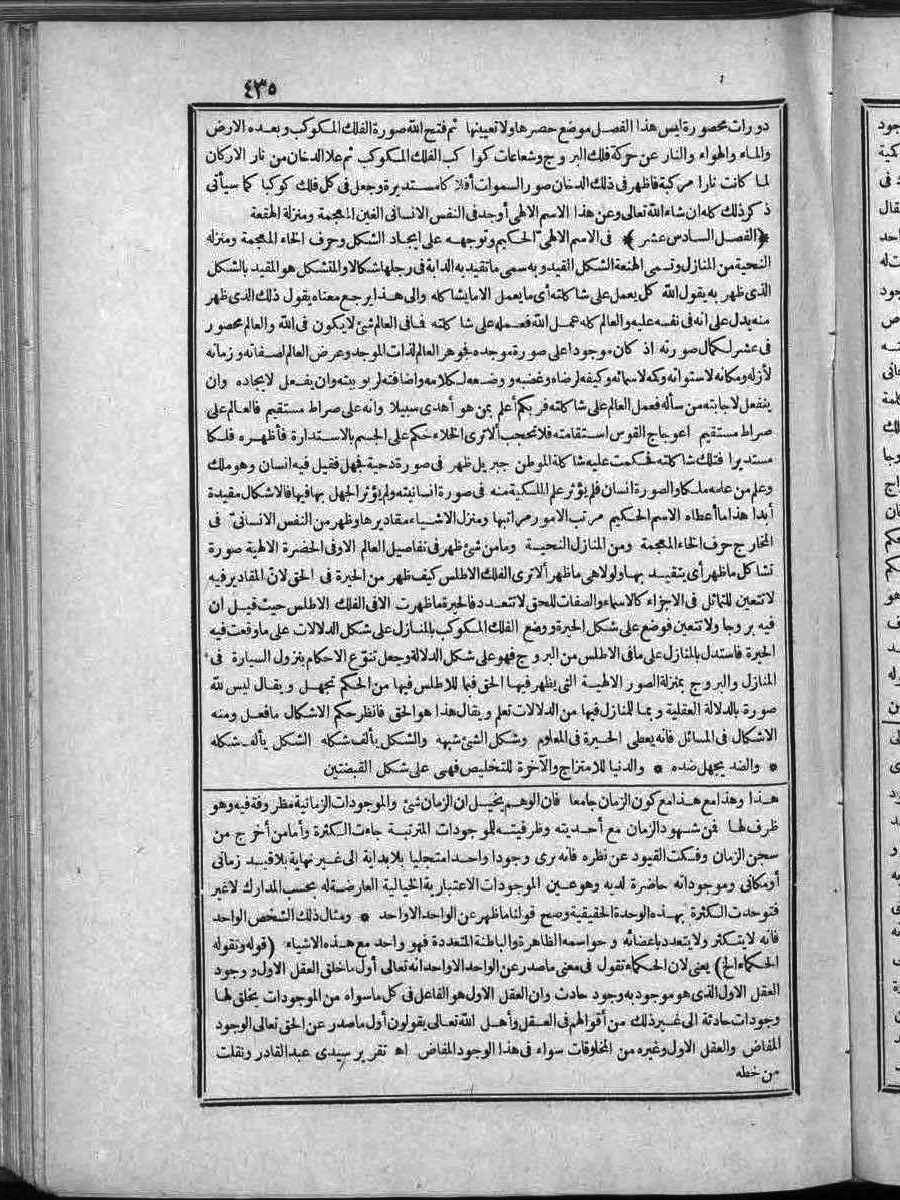 ٤٣٥
دورات محصورة ليس هذا الفصل موضع حصرها ولا تعيينها ثم فتح الله صورة الفلك المكوكب وبعده الارض
والماء والهواء والنار عن حركة فلك البروج وشعاعات كواكب الفلك المكوكب ثم علا الدخان من نار الاركان
لما كانت نارا مركبة فاظهر فى ذلك الدخان صور السموات أفلاكا مستديرة وجعل فى كل فلك كوكبا كما سيأتى
ذكر ذلك كله ان شاء الله تعالى وعن هذا الاسم الالهى أوجد فى النفس الانسانى الغين المعجمة ومنزلة الهقعة
﴿الفصل السادس عشر﴾ فى الاسم الالهى الحكيم وتوجهه على ايجاد الشكل وحرف الخاء المعجمة ومنزلة
التحية من المنازل وتسمى الهنعة الشكل القيد وبه سمى ما تقيد به الدابة فى رجلها شكالا والمتشكل هو المقيد بالشكل
الذى ظهر به يقول الله كل يعمل على شاكلته أى ما يعمل الا ما يشاكله والى هذا يرجع معناه يقول ذلك الذى ظهر
منه يدل على انه فى نفسه عليه والعالم كله عمل الله فعمله على شاكلته فما فى العالم شئ لا يكون فى الله والعالم محصور
فى عشر لكمال صورته اذ كان موجودا على صورة موجده فجوهر العالم لذات الموجد وعرض العالم لصفاته وزمانه
لأزله ومكانه لاستوائه وكمه لاسمائه وكيفه لرضاه وغضبه ووضعه لكلامه واضافته لربوبيته وان يفعل لايجاده وان
ينفعل لاجابته من سأله فعمل العالم على شاكلته فربكم أعلم بمن هو أهدى سبيلا وانه على صراط مستقيم فالعالم على
صراط مستقيم اعوجاج القوس استقامته فلا تحجب ألا ترى الخلاء حكم على الجسم بالاستدارة فأظهره فلكا
مستديرا فتلك شاكلته فحكمت عليه شاكلة الموطن جبريل ظهر فى صورة دحية فجهل فقيل فيه انسان وهو ملك
وعلم من علمه ملكا والصورة انسان فلم يؤثر علم الملكية منه فى صورة انسانيته ولم يؤثر الجهل بها فيها فالاشكال مقيدة
أبدا هذا ما أعطاه الاسم الحكيم مرتب الامور مراتبها ومنزل الاشياء مقاديرها وظهر من النفس الانسانى فى
المخارج حرف الخاء المعجمة ومن المنازل التحية وما من شئ ظهر فى تفاصيل العالم الا وفى الحضرة الالهية صورة
تشاكل ما ظهر أى يتقيد بها ولولا هى ما ظهر ألا ترى الفلك الاطلس كيف ظهر من الحيرة فى الحق لان المقادير فيه
لا تتعين للتماثل فى الاجزاء كالاسماء والصفات للحق لا تتعدد فالحيرة ما ظهرت الا فى الفلك الاطلس حيث قيل ان
فيه بروجا ولا تتعين فوضع على شكل الحيرة ووضع الفلك المكوكب بالمنازل على شكل الدلالات على ما وقعت فيه
الحيرة فاستدل بالمنازل على ما فى الاطلس من البروج فهو على شكل الدلالة وجعل تنوع الاحكام بنزول السيارة فى
المنازل والبروج بمنزلة الصور الالهية التى يظهر فيها الحق فما للاطلس فيها من الحكم تجهل ويقال ليس لله
صورة بالدلالة العقلية وبما للمنازل فيها من الدلالات تعلم ويقال هذا هو الحق فانظر حكم الاشكال ما فعل ومنه
الاشكال فى المسائل فانه يعطى الحيرة فى المعلوم وشكل الشئ شبهه والشكل يألف شكله الشكل يألف شكله
* والضد يجهل ضده * والدنيا للامتزاج والآخرة للتخليص فهى على شكل القبضتين
هذا وهذا مع هذا مع كون الزمان جامعا فان الوهم يخيل ان الزمان شئ والموجودات الزمانية مظروفة فيه وهو
ظرف لها فمن شهود الزمان مع أحديته وظرفيته للموجودات المترتبة جاءت الكثرة وأما من أخرج من
سجن الزمان وفكت القيود عن نظره فانه يرى وجودا واحدا متجليا بلا بداية الى غير نهاية بلا قيد زمانى
أو مكانى وموجوداته حاضرة لديه وهو عين الموجودات الاعتبارية الخيالية العارضة له بحسب المدارك لا غير
فتوحدت الكثرة بهذه الوحدة الحقيقية وصح قولنا ما ظهر عن الواحد الا واحد * ومثال ذلك الشخص الواحد
فانه لا يتكثر ولا يتعدد باعضائه وحواسه الظاهرة والباطنة المتعددة فهو واحد مع هذه الاشياء (قوله وتقوله
الحكماء الخ) يعنى لان الحكماء تقول فى معنى ما صدر عن الواحد الا واحد انه تعالى أول ما خلق العقل الاول ووجود
العقل الاول الذى هو موجود به وجود حادث وان العقل الاول هو الفاعل فى كل ما سواه من الموجودات يخلق لها
وجودات حادثة الى غير ذلك من أقوالهم فى العقل وأهل الله تعالى يقولون أول ما صدر عن الحق تعالى الوجود
المفاض والعقل الاول وغيره من المخلوقات سواء فى هذا الوجود المفاض اه تقرير سيدى عبد القادر ونقلت
من خطه